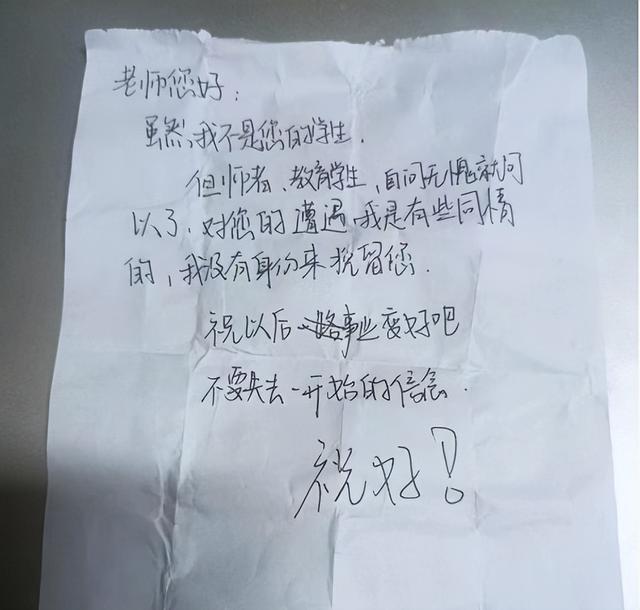 老师您好：
虽然，我不是您的学生．
但师者、教育学生，自问无愧就可
以了．对您的遭遇，我是有些同情
的，我没有身份来挽留您．
祝以后事业变好吧
不要失去一开始的信念．
祝好！